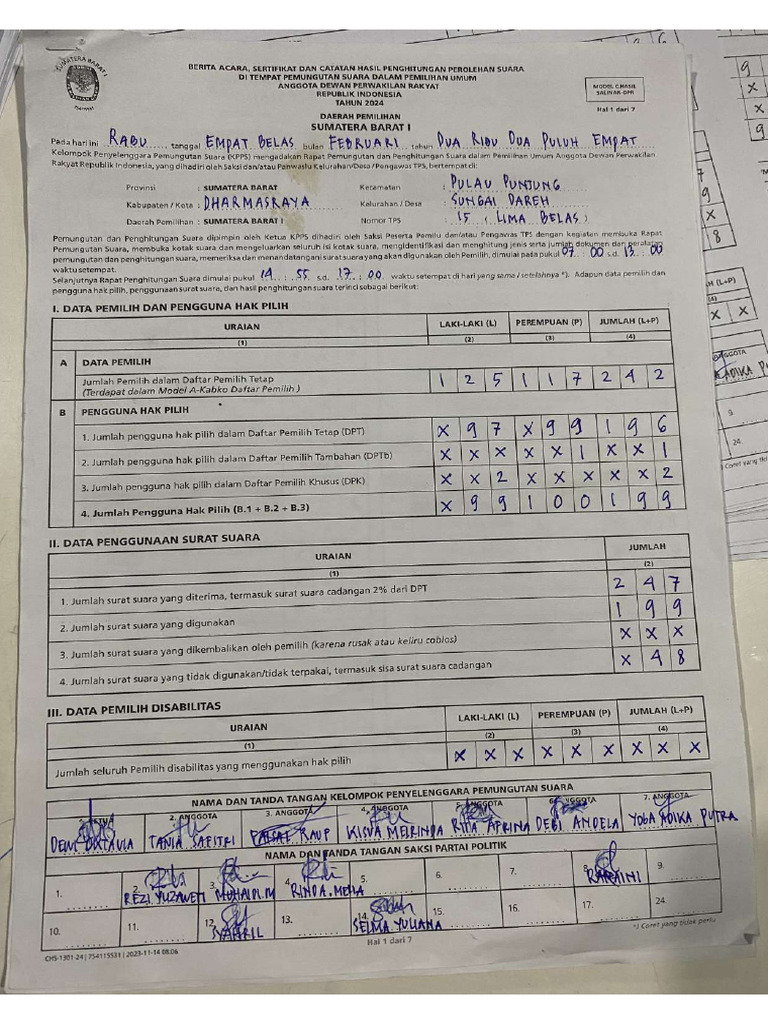 SUMATERA BARAT I
BERITA ACARA, SERTIFIKAT DAN CATATAN HASIL PENGHITUNGAN PEROLEHAN SUARA
DI TEMPAT PEMUNGUTAN SUARA DALAM PEMILIHAN UMUM
ANGGOTA DEWAN PERWAKILAN RAKYAT
REPUBLIK INDONESIA
TAHUN 2024
MODEL C.HASIL SALINAN-DPR
Hal 1 dari 7
DAERAH PEMILIHAN
SUMATERA BARAT I
Pada hari ini RABU tanggal EMPAT BELAS bulan FEBRUARI tahun DUA RIBU DUA PULUH EMPAT
Kelompok Penyelenggara Pemungutan Suara (KPPS) mengadakan Rapat Pemungutan dan Penghitungan Suara dalam Pemilihan Umum Anggota Dewan Perwakilan
Rakyat Republik Indonesia, yang dihadiri oleh Saksi dan/atau Panwaslu Kelurahan/Desa/Pengawas TPS, bertempat di:
Provinsi : SUMATERA BARAT Kecamatan : PULAU PUNJUNG
Kabupaten / Kota : DHARMASRAYA Kelurahan / Desa : SUNGAI DAREH
Daerah Pemilihan : SUMATERA BARAT I Nomor TPS : 15 (LIMA BELAS)
Pemungutan dan Penghitungan Suara dipimpin oleh Ketua KPPS dihadiri oleh Saksi Peserta Pemilu dan/atau Pengawas TPS dengan kegiatan membuka Rapat
Pemungutan Suara, membuka kotak suara dan mengeluarkan seluruh isi kotak suara, mengidentifikasi dan menghitung jenis serta jumlah dokumen dan peralatan
pemungutan dan penghitungan suara, memeriksa dan menandatangani surat suara yang akan digunakan oleh Pemilih, dimulai pada pukul 07 : 00 s.d. 13 : 00
waktu setempat.
Selanjutnya Rapat Penghitungan Suara dimulai pukul 14 : 55 s.d. 17 : 00 waktu setempat di hari yang sama / setelahnya *). Adapun data pemilih dan
pengguna hak pilih, penggunaan surat suara, dan hasil penghitungan suara terinci sebagai berikut:
I. DATA PEMILIH DAN PENGGUNA HAK PILIH
URAIAN LAKI-LAKI (L) PEREMPUAN (P) JUMLAH (L+P)
(1) (2) (3) (4)
A DATA PEMILIH
Jumlah Pemilih dalam Daftar Pemilih Tetap
(Terdapat dalam Model A-Kabko Daftar Pemilih) 1 2 5 1 1 7 2 4 2
B PENGGUNA HAK PILIH
1. Jumlah pengguna hak pilih dalam Daftar Pemilih Tetap (DPT) X 9 7 X 9 9 1 9 6
2. Jumlah pengguna hak pilih dalam Daftar Pemilih Tambahan (DPTb) X X X X X 1 X X 1
3. Jumlah pengguna hak pilih dalam Daftar Pemilih Khusus (DPK) X X 2 X X X X X 2
4. Jumlah Pengguna Hak Pilih (B.1 + B.2 + B.3) X 9 9 1 0 0 1 9 9
II. DATA PENGGUNAAN SURAT SUARA
URAIAN JUMLAH
(1) (2)
1. Jumlah surat suara yang diterima, termasuk surat suara cadangan 2% dari DPT 2 4 7
2. Jumlah surat suara yang digunakan 1 9 9
3. Jumlah surat suara yang dikembalikan oleh pemilih (karena rusak atau keliru coblos) X X X
4. Jumlah surat suara yang tidak digunakan/tidak terpakai, termasuk sisa surat suara cadangan X 4 8
III. DATA PEMILIH DISABILITAS
URAIAN LAKI-LAKI (L) PEREMPUAN (P) JUMLAH (L+P)
(1) (2) (3) (4)
Jumlah seluruh Pemilih disabilitas yang menggunakan hak pilih X X X X X X X X X
NAMA DAN TANDA TANGAN KELOMPOK PENYELENGGARA PEMUNGUTAN SUARA
1. KETUA 2. ANGGOTA 3. ANGGOTA 4. ANGGOTA 5. ANGGOTA 6. ANGGOTA 7. ANGGOTA
DEWI OKTAVIA TANIA SAFITRI FAISAL RAUF KISVA MEIRINDA RITA APRINA DEBI ANDELA YOGA ADIKA PUTRA
NAMA DAN TANDA TANGAN SAKSI PARTAI POLITIK
1. 2. 3. 4. 5. 6. 7. 8. 9.
REZI YUZAWETI RINDA.MEILA RARAINI
10. 11. 12. 13. 14. 15. 16. 17. 24.
SYAHRIL SELMA.YULIANA
*) Coret yang tidak perlu
Hal 1 dari 7
CHS-1301-24 | 754115531 | 2023-11-14 08:06